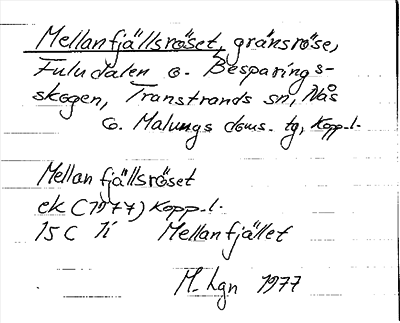 Mellanfjällsröset, gränsröse,
Fuludalen o. Besparings-
skogen, Transtrands sn, Nås
o. Malungs doms. tg, Kopp.l.
Mellanfjällsröset
ek (1977) Kopp.l.
15 C 1i Mellanfjället
M. Lgn 1977